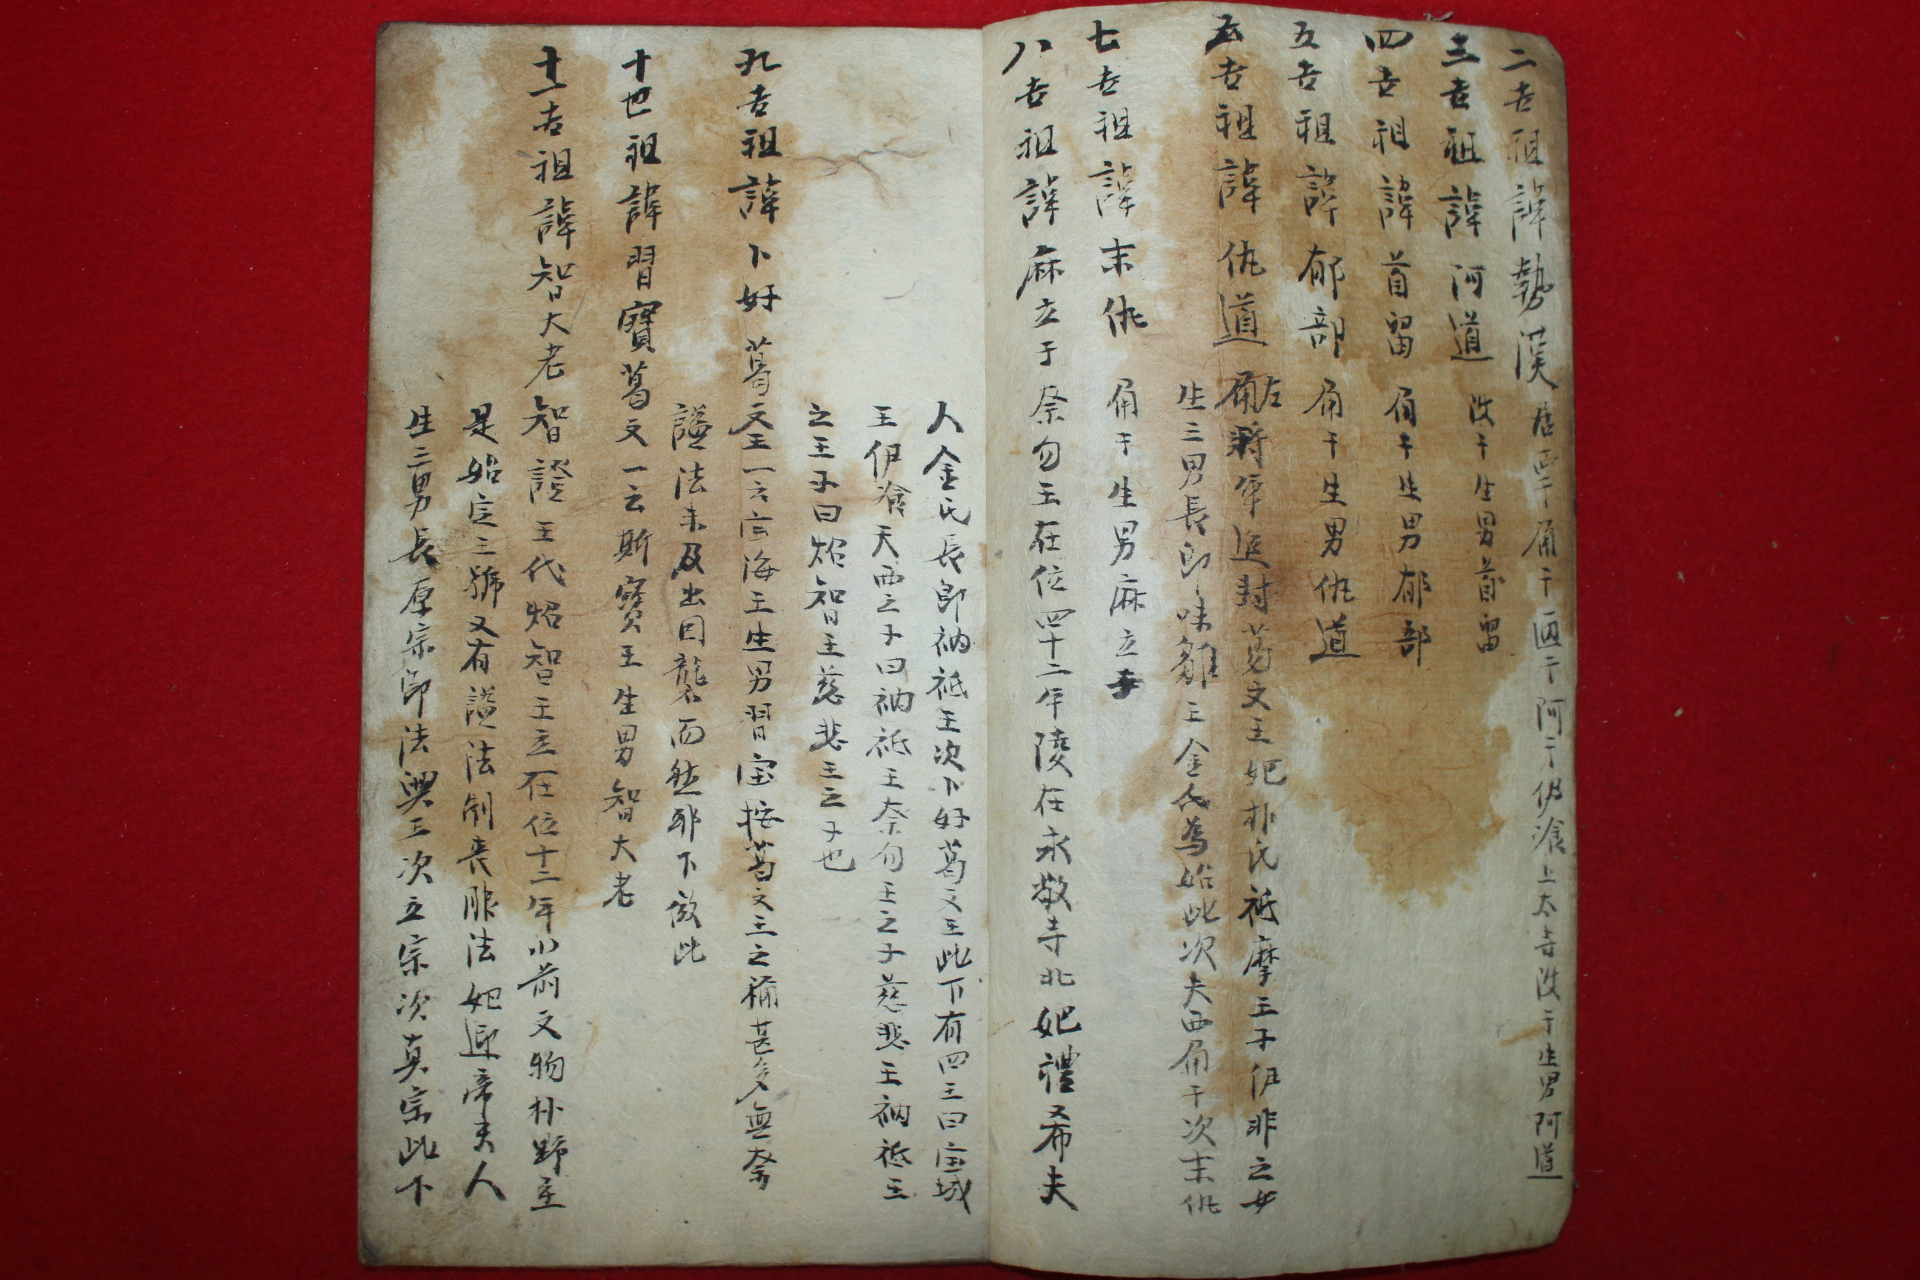 二世祖諱勢漢 居西干角干迊干阿干伊飡上太寺波干生男阿道
三世祖諱阿道 波干生男首留
四世祖諱首留 角干生男郁部
五世祖諱郁部 角干生男仇道
五世祖諱仇道 左角將軍追封葛文王妃朴氏祗摩王子伊非之女
生三男長郎味鄒王金氏爲始此次夫西角干次末仇
七世祖諱末仇 角干生男麻立女
八世祖諱麻立于奈勿王在位四十二年陵在永敬寺北妃禮希夫
人金氏長郎衲祗王次卜好葛文王此下有四王曰宝城
王伊飡天西之子曰衲祗王奈勿王之子慈悲王衲祗王
之王子曰炤智王慈悲王之子也
九世祖諱卜好 葛文王一云 海王生男習宝按葛文王之稱甚多無奈
謚法未及出因襲而然耶下倣此
十世祖諱習寶葛文一云斯寶王生男智大老
十一世祖諱智大老 智證王代炤智王立在位十二年小前文物朴野至
是始定王號又有謚法制喪服法妃延帝夫人
生三男長原宗郎法興王次立宗次真宗此下